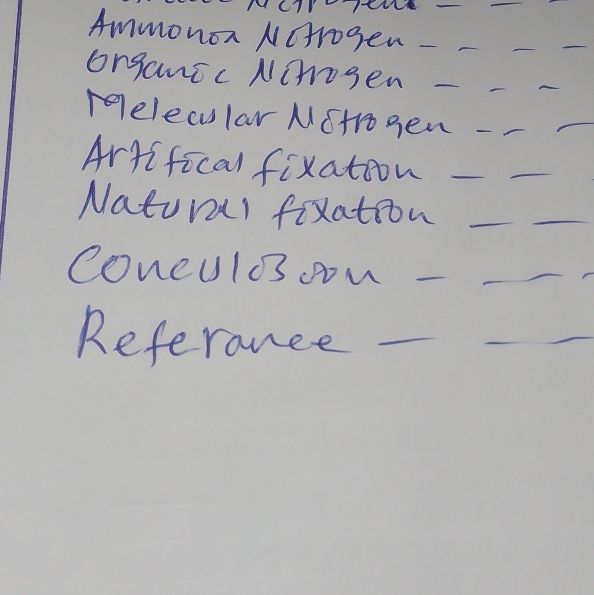 Nitrogen - - -
Ammonoa Nitrogen - - - -
Organic Nitrogen - - -
Melecular Nitrogen - - -
Artifical fixation - -
Natural fixation - -
Conculsoon - - -
Referance - -